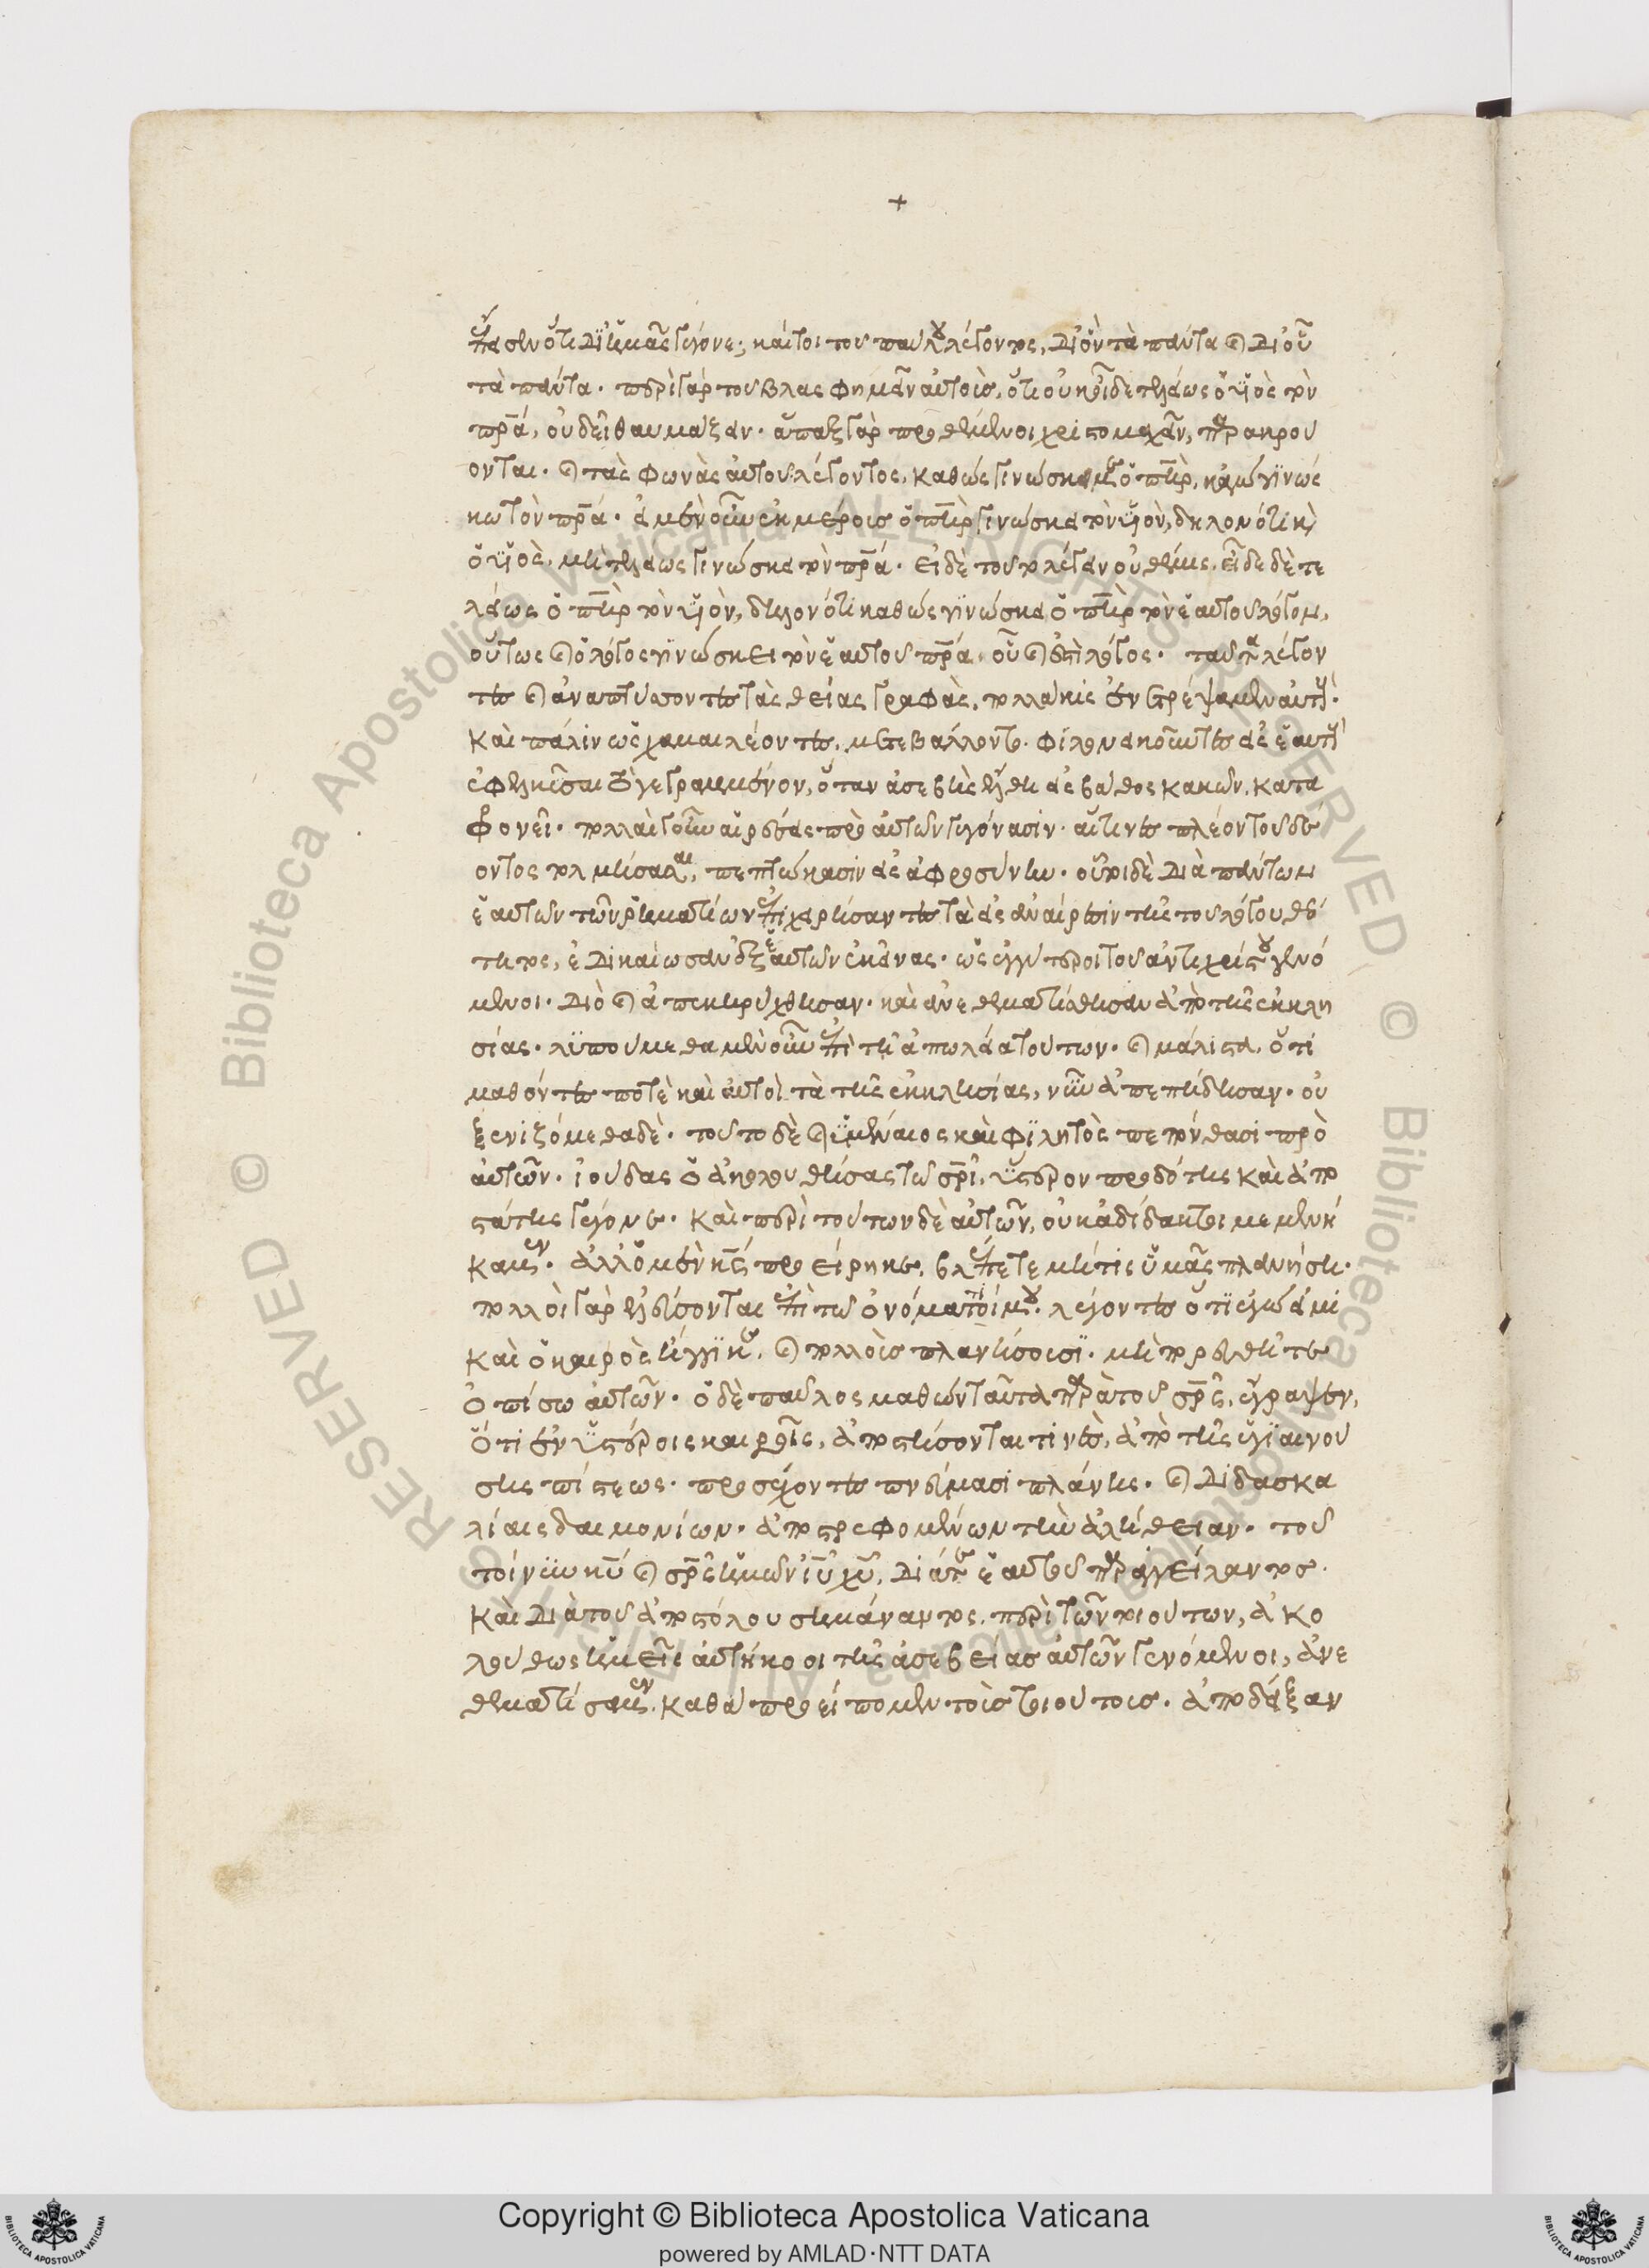 ἔπεισεν ὅτι δι' ἡμᾶς γέγονε; καίτοι τοῦ παύλου λέγοντος, δι' ὃν τὰ πάντα καὶ δι' οὗ
τὰ πάντα. περὶ γὰρ τοῦ βλασφημεῖν αὐτοὺς, ὅτι οὐκ οἶδε τελείως ὁ υἱὸς τὸν
πρᾱ́, οὐ δεῖ θαυμάζειν. ἅπαξ γὰρ προθέμενοι χριστομαχεῖν, παρακρού
ονται. καὶ τὰς φωνὰς αὐτοῦ λέγοντος, καθὼς γινώσκει με ὁ πηρ, κἀγὼ γινώσ
κω τὸν πρᾱ́. εἰ μὲν οὖν ἐκ μέρους ὁ πηρ γινώσκει τὸν υἱὸν, δηλονότι κὶ
ὁ υἱὸς, μὴ τελείως γινώσκει τὸν πρᾱ́. εἰ δὲ τοῦτο λέγειν οὐ θέμις, οἶδε δὲ τε
λείως ὁ πηρ τὸν υἱὸν, δῆλον ὅτι καθὼς γινώσκει ὁ πηρ τὸν ἑαυτοῦ λόγον,
οὕτως καὶ ὁ λόγος γινώσκει τὸν ἑαυτοῦ πρᾱ́, οὗ καὶ ἐστὶ λόγος. ταῦτα λέγον
τες καὶ ἀναπτύσσοντες τὰς θείας γραφὰς, πολλάκις ἐνετρέψαμεν αὐτούς.
καὶ πάλιν ὡς χαμαιλέοντες, μετεβάλλοντο. φιλονεικοῦντες εἰς ἑαυτοὺς
ἐφελκῦσαι τὸ γεγραμμένον, ὅταν ἀσεβὴς ἔλθη εἰς βάθος κακῶν, κατα
φρονεῖ. πολλαὶ γοῦν αἱρέσεις πρὸ αὐτῶν γεγόνασιν. αἵτινες πλέον τοῦ δέ
οντος τολμήσασαι, πεπτώκασιν εἰς ἀφροσύνην. οὗτοι δὲ διὰ πάντων
ἑαυτῶν τῶν ῥηματίων ἐπιχειρήσαντες τὰ εἰς ἀναίρεσιν τῆς τοῦ λόγου θεό
τητος, ἐδικαίωσαν ἐξ ἑαυτῶν ἐκείνας. ὡς ἐγγύτεροι τοῦ ἀντιχρίστου γενό
μενοι. διὸ καὶ ἀπεκηρύχθησαν. καὶ ἀνεθεματίσθησαν ἀπὸ τῆς ἐκκλη
σίας. λυπούμεθα μὲν οὖν ἐπὶ τῆ ἀπωλεία τούτων. καὶ μάλιστα, ὅτι
μαθόντες ποτὲ καὶ αὐτοὶ τὰ τῆς ἐκκλησίας, νῦν ἀπεπήδησαν. οὐ
ξενιζόμεθα δὲ. τοῦτο δὲ καὶ ὑμέναιος καὶ φιλητὸς πεπόνθασι πρὸ
αὐτῶν. ἰούδας ὁ ἀκολουθήσας τῶ σρι, ὕστερον προδότης καὶ ἀπο
στάτης γέγονε. καὶ περὶ τούτων δὲ αὐτῶν, οὐκ ἀδίδακτοι μεμενή
καμεν. ἀλλ' ὁ μὲν κς προείρηκε, βλέπετε μήτις ὑμᾶς πλανήση.
πολλοὶ γὰρ ἐλεύσονται ἐπὶ τῶ ὀνόματί μου, λέγοντες ὅτι ἐγώ εἰμι
καὶ ὁ καιρὸς ἤγγικε, καὶ πολλοὺς πλανήσουσι. μὴ πορευθῆτε
ὀπίσω αὐτῶν. ὁ δὲ παῦλος μαθὼν ταῦτα παρὰ τοῦ σρς, ἔγραψεν,
ὅτι ἐν ὑστέροις καιροῖς, ἀποστήσονται τινὲς, ἀπὸ τῆς ὑγιαινού
σης πίστεως. προσέχοντες πνεύμασι πλάνης. καὶ διδασκα
λίαις δαιμονίων. ἀποστρεφομένων τὴν ἀλήθειαν. τοῦ
τοίνυν κυ καὶ σρς ἡμῶν ιυ χυ, διά τε ἑαυτοῦ παραγγείλαντος.
καὶ διὰ τοῦ ἀποστόλου σημάναντος, περὶ τῶν τοιούτων, ἀκο
λούθως ἡμεῖς αὐτήκοοι τῆς ἀσεβείας αὐτῶν γενόμενοι, ἀνε
θεματίσαμεν, καθὰ προείπομεν τοὺς τοιούτους. ἀποδείξαν
Copyright © Biblioteca Apostolica Vaticana
powered by AMLAD·NTT DATA